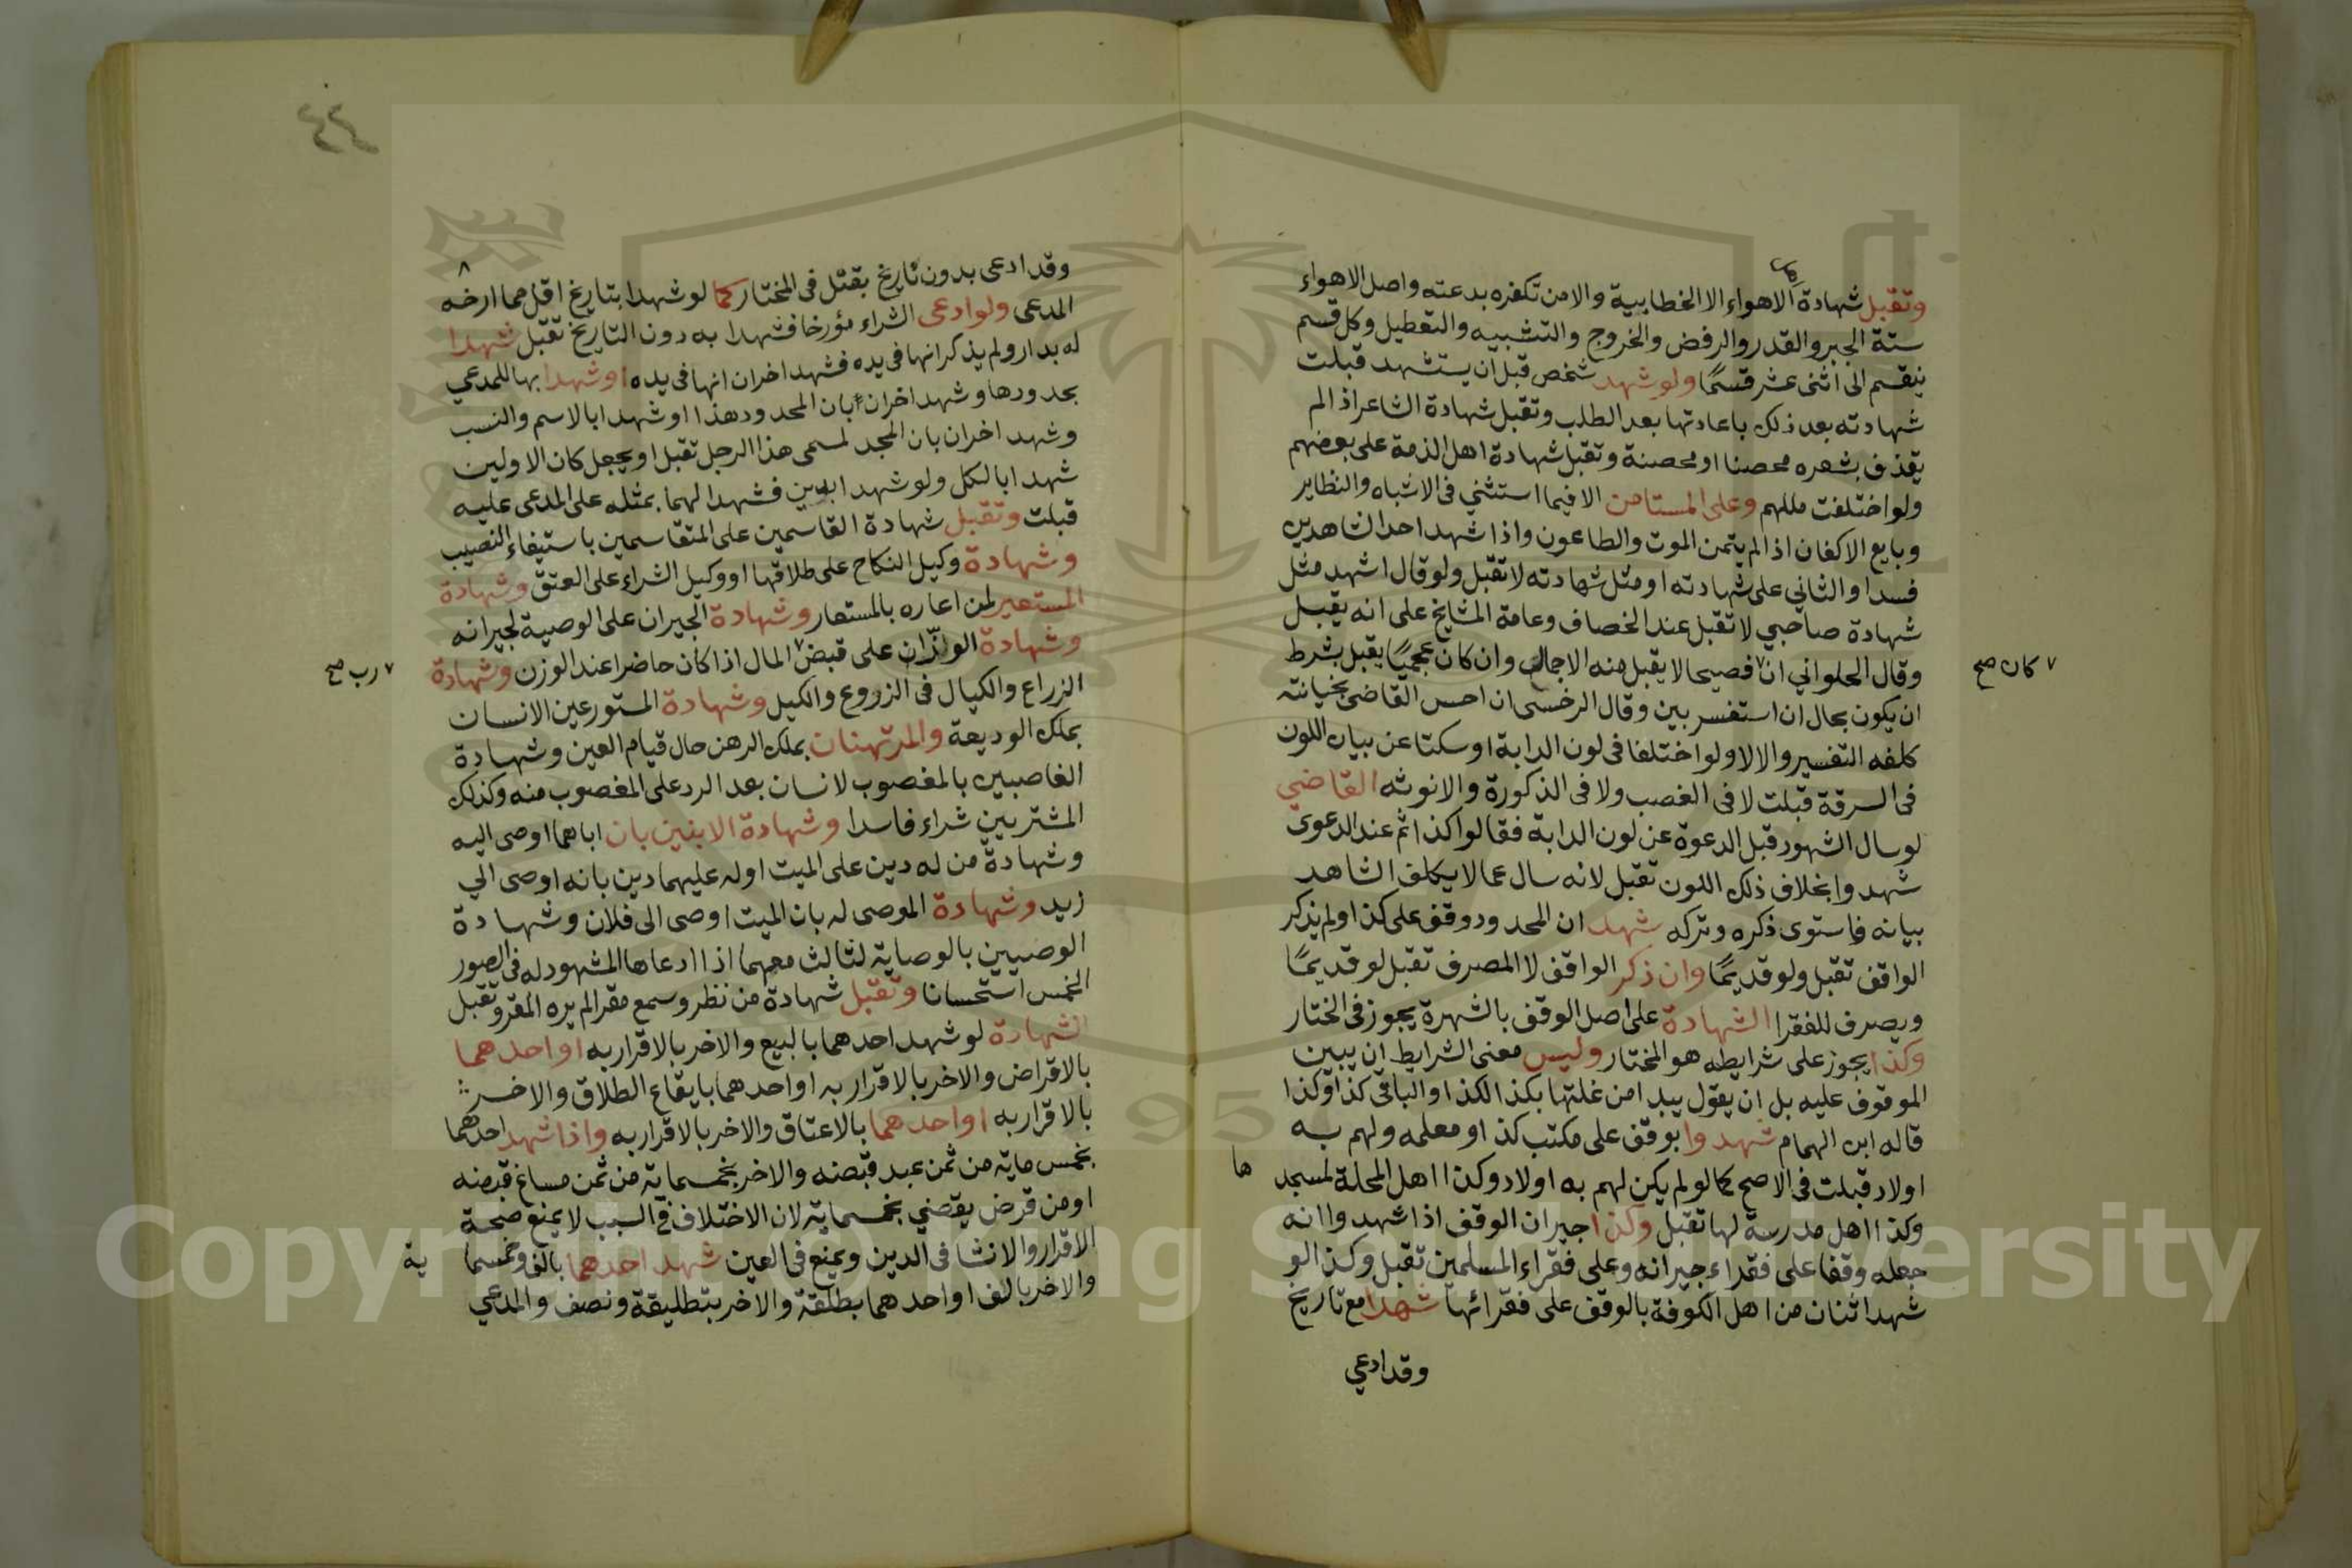 وتقبل شهادة اهل الاهواء الا الخطابية والا من تكفره بدعته واصل الاهواء
ستة الجبر والقدر والرفض والخروج والتشبيه والتعطيل وكل قسم
ينقسم الى اثنى عشر قسمًا ولو شهد شخص قبل ان يستشهد قبلت
شهادته بعد ذلك باعادتها بعد الطلب وتقبل شهادة الشاعر اذا لم
يقذف بشعره محصنا او محصنة وتقبل شهادة اهل الذمة على بعضهم
ولو اختلفت مللهم وعلى المستامن الا فيما استثني في الاشباه والنظاير
وبايع الاكفان اذا لم يتمن الموت والطاعون واذا شهد احد الشاهدين
فسدا والثاني على شهادته او مثل شهادته لا تقبل ولو قال اشهد مثل
شهادة صاحبي لا تقبل عند الخصاف وعامة المشايخ على انه يقبل
وقال الحلواني ان فصيحا لا يقبل منه الاجمال وان كان عجميًا يقبل بشرط
٧ كان صح
ان يكون بحال ان استفسر بين وقال الرخسى ان احس القاضى بخيانته
كلفه التفسير والا لا ولو اختلفا في لون الدابة او سكتا عن بيان اللون
في السرقة قبلت لا في الغصب ولا في الذكورة والانوثه القاضي
لو سال الشهود قبل الدعوة عن لون الدابة فقالوا كذا ثم عند الدعوى
شهدوا بخلاف ذلك اللون تقبل لانه سال عما لا يكلف الشاهد
بيانه فاستوى ذكره وتركه شهد ان المحدود وقف على كذا ولم يذكر
الواقف تقبل ولو قديمًا وان ذكر الواقف لا المصرف تقبل لو قديمًا
ويصرف للفقرا الشهادة على اصل الوقف بالشهرة يجوز في الختار
وكذا يجوز على شرايطه هو المختار وليس معنى الشرايط ان يبين
الموقوف عليه بل ان يقول يبدا من غلتها بكذا لكذا والباقي كذا وكذا
قاله ابن الهمام شهدوا بوقف على مكتب كذا ومعلمه ولهم به
اولاد قبلت في الاصح كما لو لم يكن لهم به اولاد وكذا اهل المحلة لمسجد
ها
وكذا اهل مدرسة لها تقبل وكذا جيران الوقف اذا شهدوا انه
جعله وقفا على فقراء جيرانه وعلى فقراء المسلمين تقبل وكذا لو
شهد اثنان من اهل الكوفة بالوقف على فقرائها شهدا مع تاريخ
وقد ادعي
٤٤
وقد ادعى بدون تاريخ يقبل في المختار كما لو شهدا بتاريخ اقل مما ارخه
المدعى ولو ادعى الشراء مؤرخا فشهدا به دون التاريخ تقبل شهدا
له بدار ولم يذكر انها في يده فشهد اخران انها في يده او شهدا بها للمدعي
بحدودها وشهد اخران بان المحدود هذا او شهدا بالاسم والنسب
وشهد اخران بان المسمى هذا الرجل تقبل او يجعل كان الاولين
شهدا بالكل ولو شهدا بدين فشهدا لهما بمثله على المدعى عليه
قبلت وتقبل شهادة القاسمين على المتقاسمين باستيفاء النصيب
وشهادة وكيل النكاح على طلاقها او وكيل الشراء على العتق وشهادة
المستعير لمن اعاره بالمستعار وشهادة الجيران على الوصية لجيرانه
وشهادة الوزّان على قبض المال اذا كان حاضرا عند الوزن وشهادة
٧ رب صح
الزراع والكيال في الزروع والكيل وشهادة المستودعين الانسان
بملك الوديعة والمرتهنان بملك الرهن حال قيام العين وشهادة
الغاصبين بالمغصوب لانسان بعد الرد على المغصوب منه وكذلك
المشتريين شراء فاسدا وشهادة الابنين بان اباهما اوصى اليه
وشهادة من له دين على الميت او له عليهما دين بانه اوصى الي
زيد وشهادة الموصى له بان الميت اوصى الى فلان وشهادة
الوصيين بالوصاية لثالث معهما اذا ادعاها المشهود له في الصور
الخمس استحسانا وتقبل شهادة من نظر وسمع مقرا لم يره المقر وتقبل
الشهادة لو شهد احدهما بالبيع والاخر بالاقرار به او احدهما
بالاقراض والاخر بالاقرار به او احدهما بايقاع الطلاق والاخر
بالاقرار به او احدهما بالاعتاق والاخر بالاقرار به واذا شهد احدهما
بخمس ماية من ثمن عبد قبضه والاخر بخمسماية من ثمن مساغ قبضه
او من قرض يقضي بخمسماية لان الاختلاف في السبب لا يمنع صحة
الاقرار والانشا في الدين ويمنع في العين شهد احدهما بالف وخمسما ية
والاخر بالف او احدهما بطلقة والاخر بتطليقة ونصف والمدعي
Copyright © King Saud University